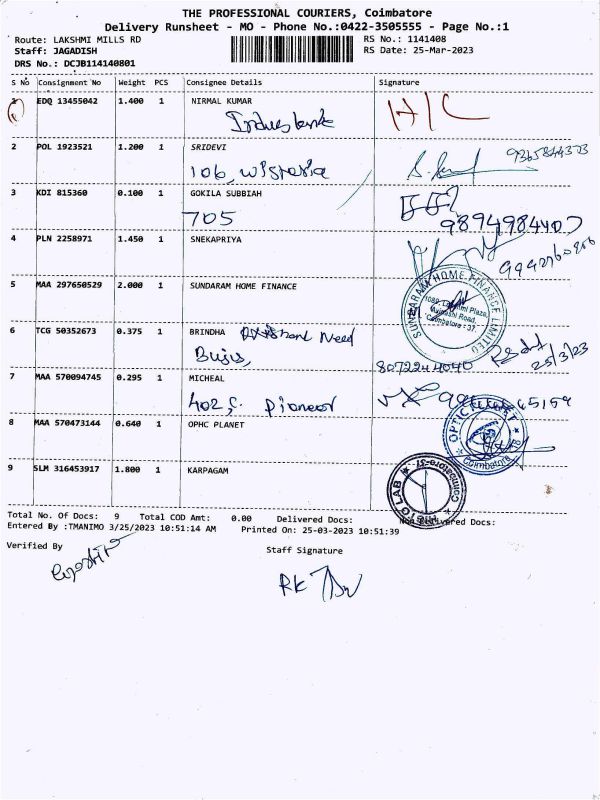 THE PROFESSIONAL COURIERS, Coimbatore
Delivery Runsheet - MO - Phone No.:0422-3505555 - Page No.:1
Route: LAKSHMI MILLS RD RS No.: 1141408
Staff: JAGADISH RS Date: 25-Mar-2023
DRS No.: DCJB114140801
S No Consignment No Weight PCS Consignee Details Signature
1 EDQ 13455042 1.400 1 NIRMAL KUMAR
2 POL 1923521 1.200 1 SRIDEVI
106, Wisteria
3 KDI 815360 0.100 1 GOKILA SUBBIAH
705
4 PLN 2258971 1.450 1 SNEKAPRIYA
5 MAA 297650529 2.000 1 SUNDARAM HOME FINANCE
SUNDARAM HOME FINANCE LIMITED
Coimbatore - 37.
6 TCG 50352673 0.375 1 BRINDHA
8072244040 25/3/23
7 MAA 570094745 0.295 1 MICHEAL
402, C. Pioneer
8 MAA 570473144 0.640 1 OPHC PLANET
Coimbatore
9 SLM 316453917 1.800 1 KARPAGAM
Total No. Of Docs: 9 Total COD Amt: 0.00 Delivered Docs: Non Delivered Docs:
Entered By :TMANIMO 3/25/2023 10:51:14 AM Printed On: 25-03-2023 10:51:39
Verified By Staff Signature